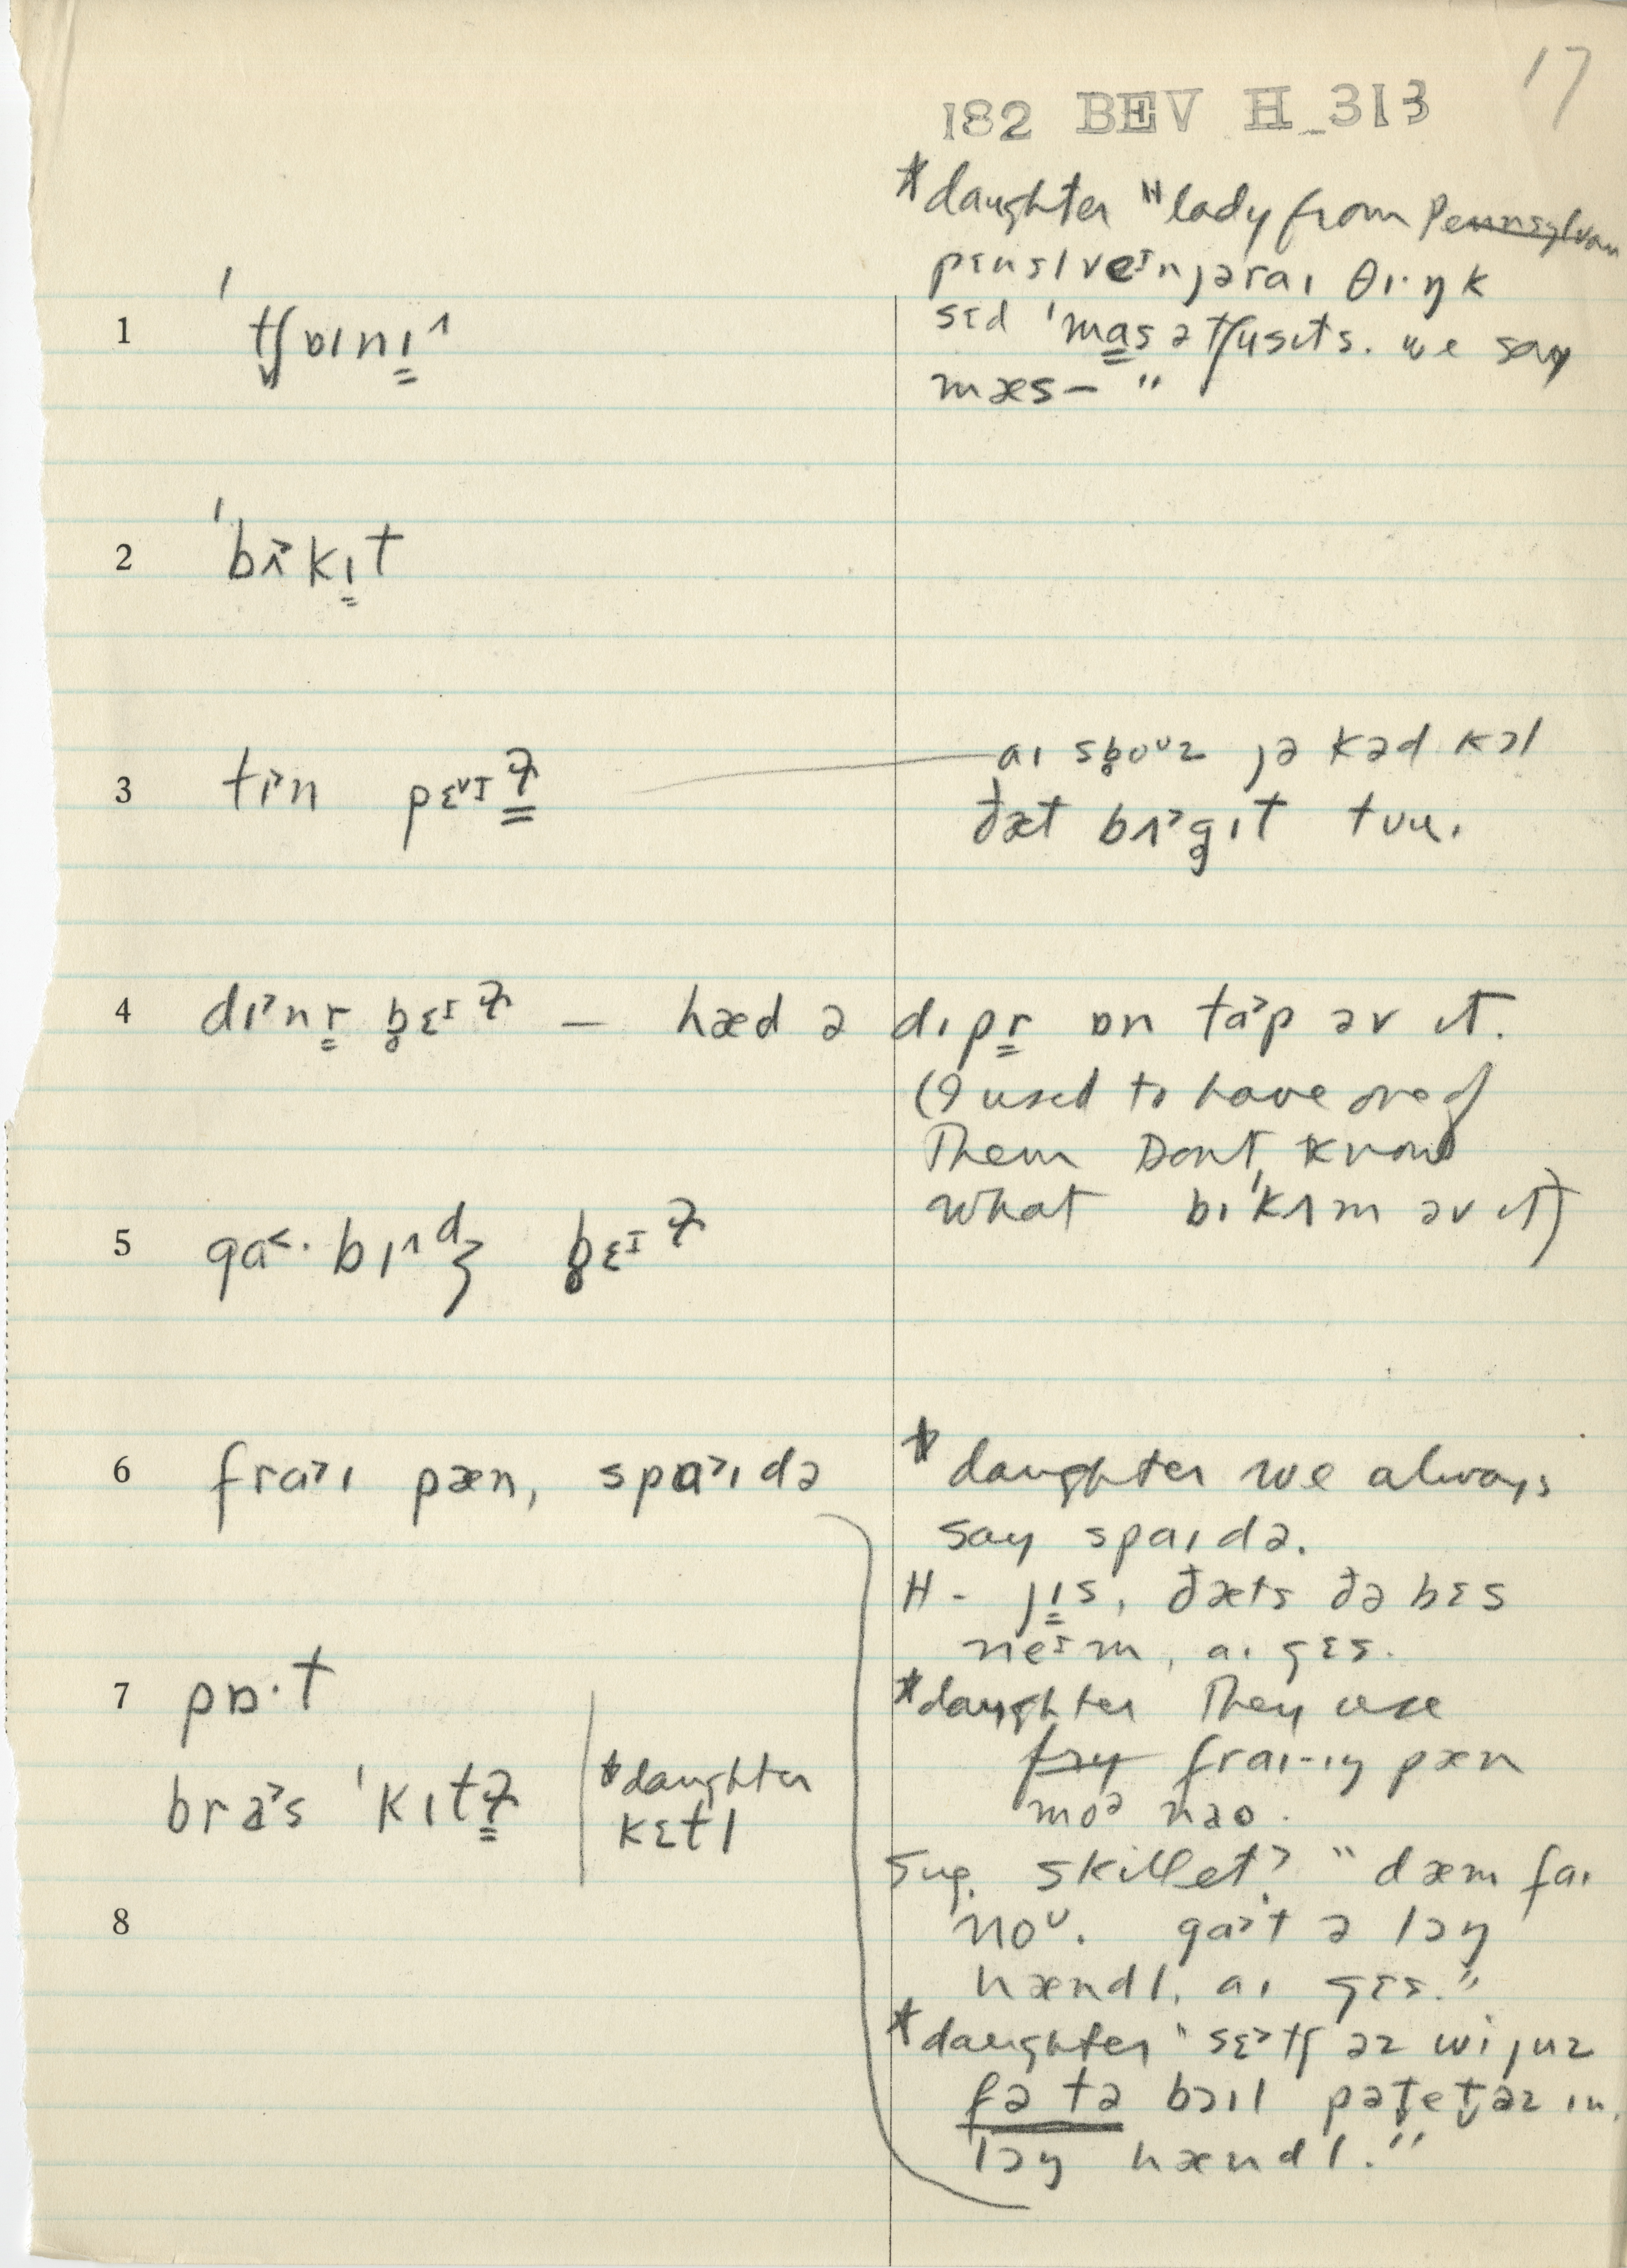 17
182 BEV H_313
*daughter "lady from Pennsylvan
pɛnslveɪnjəraɪ θɪ·ŋk
sɛd 'masətʃusɪts. we say
mæs— "
1 'tʃɒɪnɪ^
2 'bʌ>kɪt
3 tɪ>n pɛvɪɫ
aɪ sb̥oᴜz jə kəd kɔl
ðæt bʌ>g̥ɪt tuu.
4 dɪ>nr b̥ɛɪɫ — hæd ə dɪpr ɒn ta>p əv ɪt.
(I used to have one of
Them Dont know
what bɪ'kʌm əv ɪt)
5 ga<·bɪ^dʒ b̥ɛɪɫ
6 fra>ɪ pæn, spa>ɪdə
*daughter we always
say spaɪdə.
H - jɪs, ðæts ðə bɛs
neɪm, aɪ gɛs.
7 pɒ·t
*daughter They use
fry fraɪ-ɪŋ pæn
moə nao.
bra>s 'kɪtɫ
*daughter
kɛtl
Sug. skillet? "dæm faɪ
8
noᴜ. ga>t ə lɔŋ
hændl, aɪ gɛs."
*daughter "sɛ>tʃ əz wi juz
fə tə bɔɪl pət̬etəz ɪn,
lɔŋ hændl."